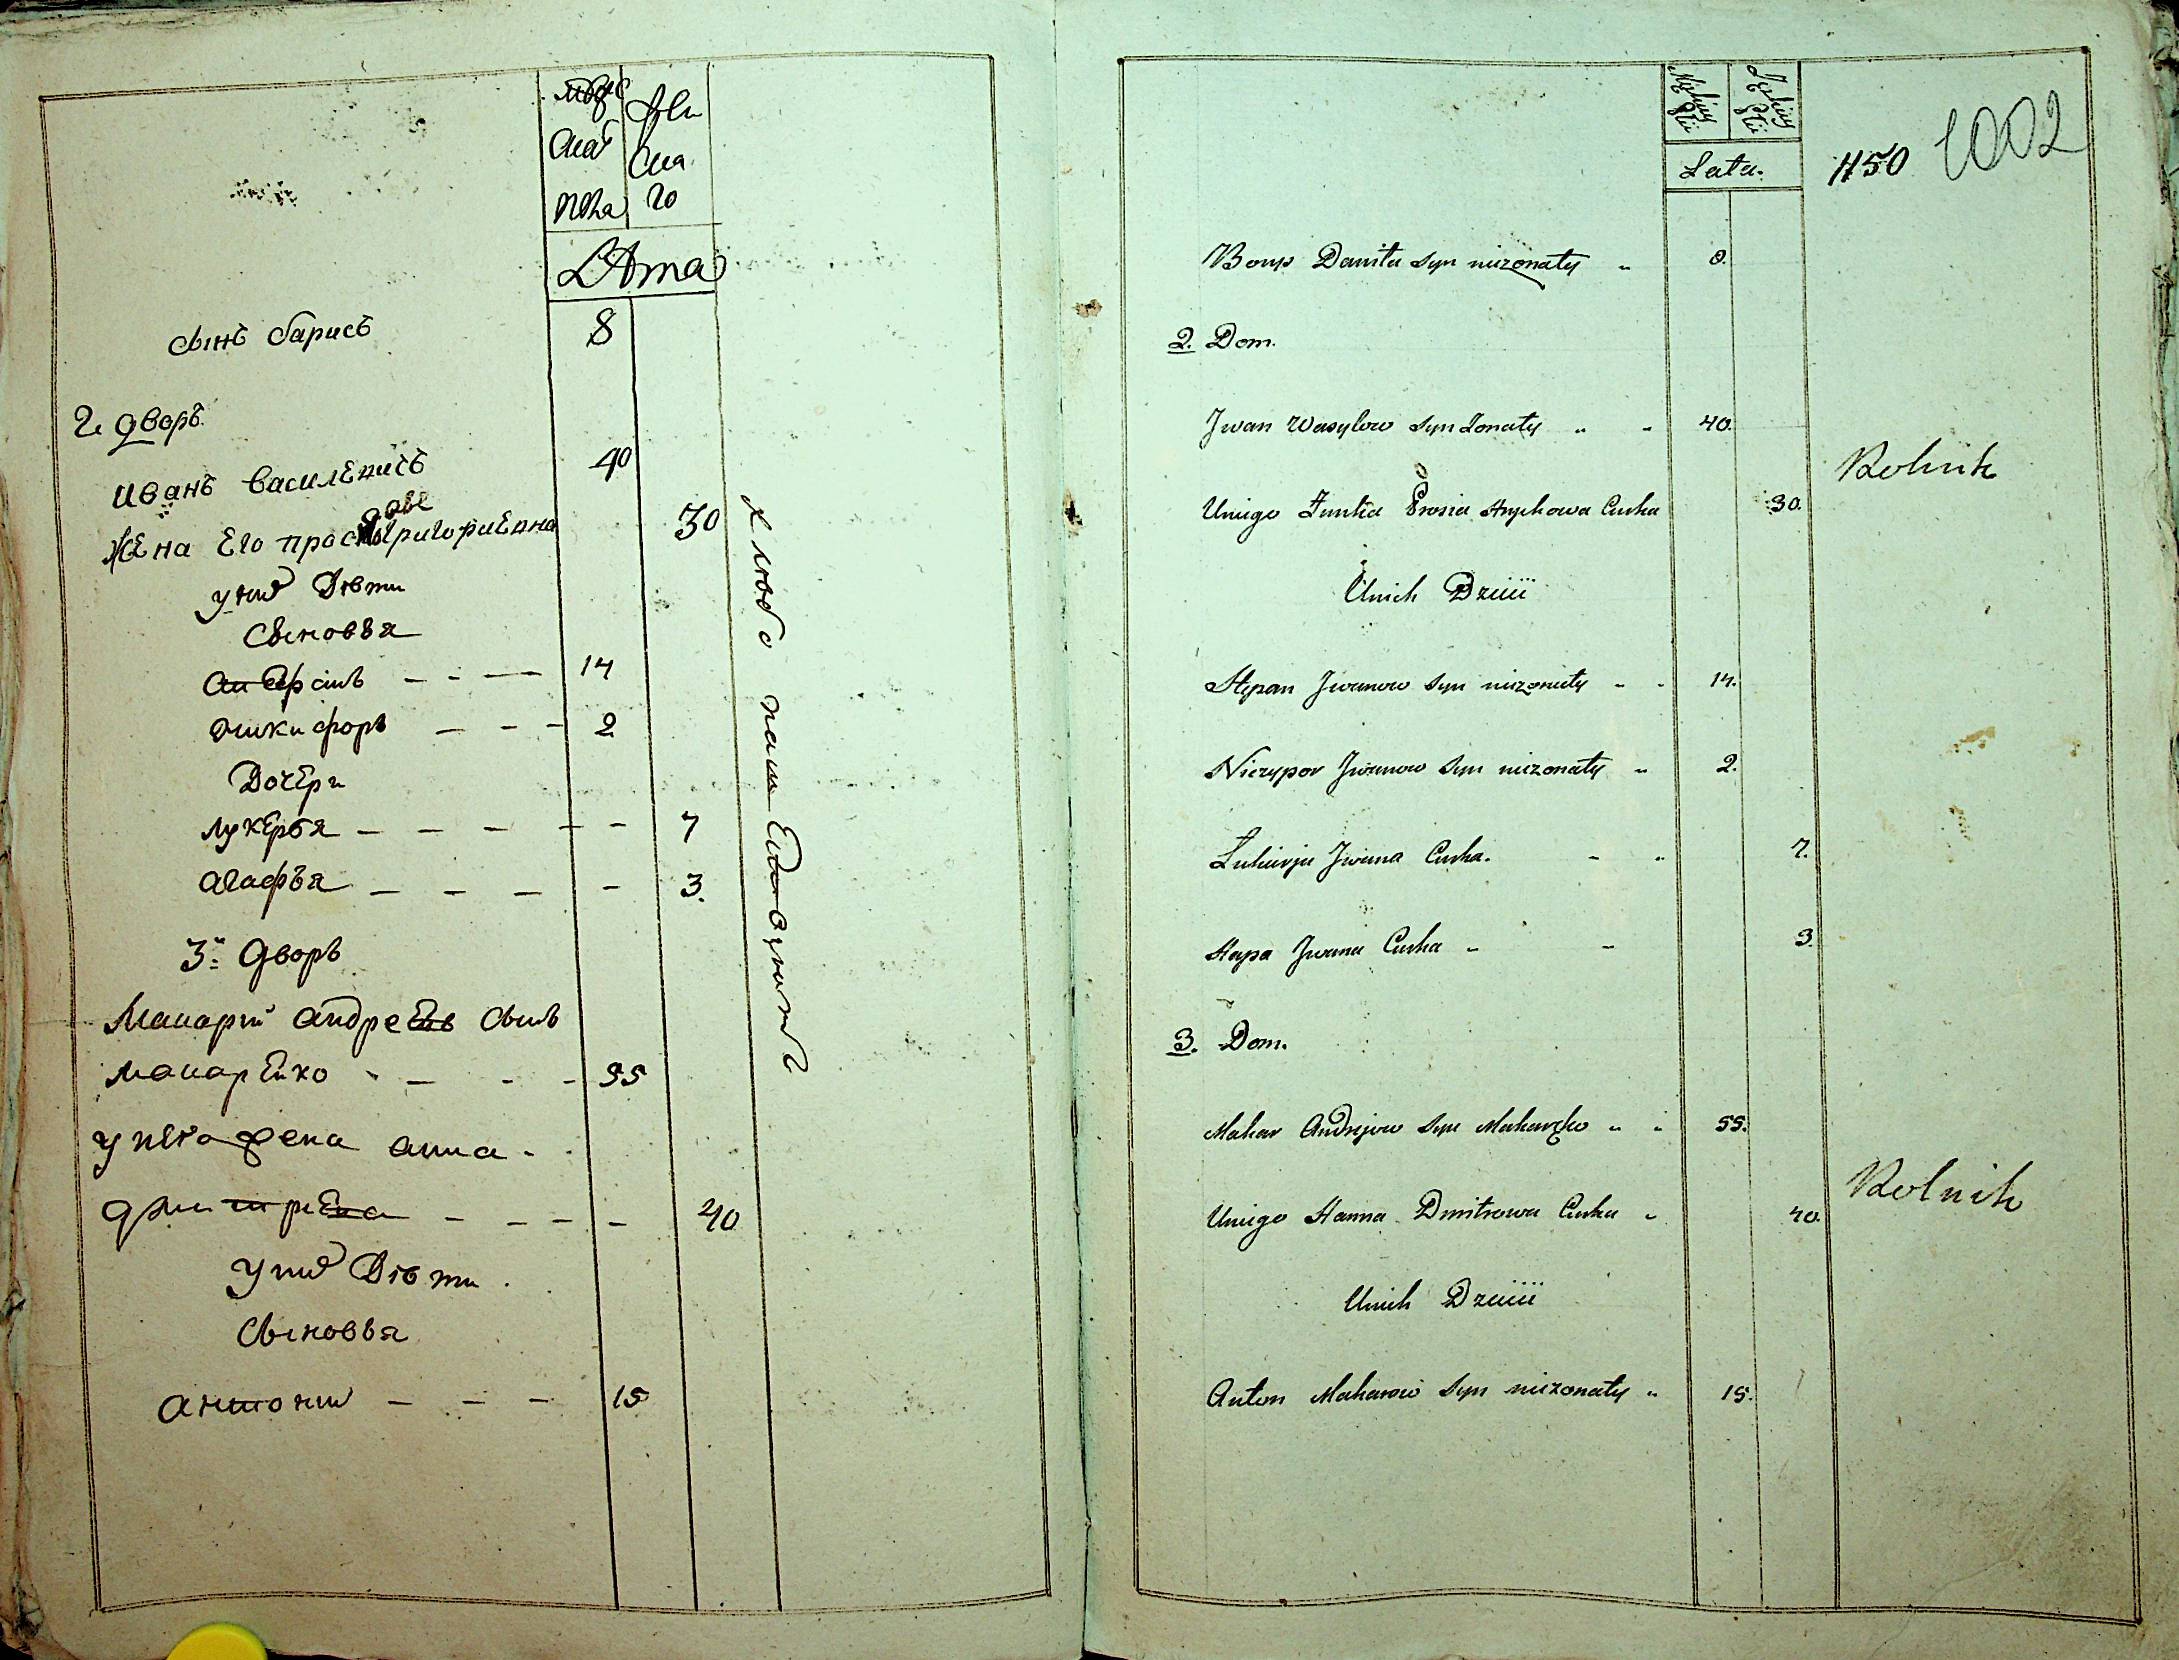 мужс
каго
пола
жен
ска
го
Лета
сынъ барисъ 8
2. дворъ
иванъ василевичъ 40
жена его прося григориевна 30
у них Дѣти
Сыновья
14
никифоръ — — — 2
Дочери
лукерья — — — — — 7
агафья — — — — 3.
3й дворъ
Макарий андреевъ сынъ
макарейко - — - - 55
у него жена анна -
дмитриева — — — — 40
у них Дѣти.
Сыновья
антоний — — — 15
хлебо пашество
Męskiey Płci
Żeńskiey Płci
Lata.
1150 1002
Borys Daniła syn nieżonaty „ 8.
2. Dom.
Jwan Wasylow syn Żonaty „ „ 40.
Rolnik
Uniego Żonka Prosia Hryhowa Curka 30.
Unich Dzieci
Stepan Jwanow syn nieżonaty „ „ 14.
Niczypor Jwanow syn nieżonaty „ 2.
Łukierja Jwana Curka. „ „ 7.
Hapa Jwana Curka „ „ 3.
3. Dom.
Makar Andrejow syn Makarejko „ „ 55.
Rolnik
Uniego Hanna Dmitrowa Curka „ 40.
Unich Dzieci
Anton Makarow syn nieżonaty „ 15.